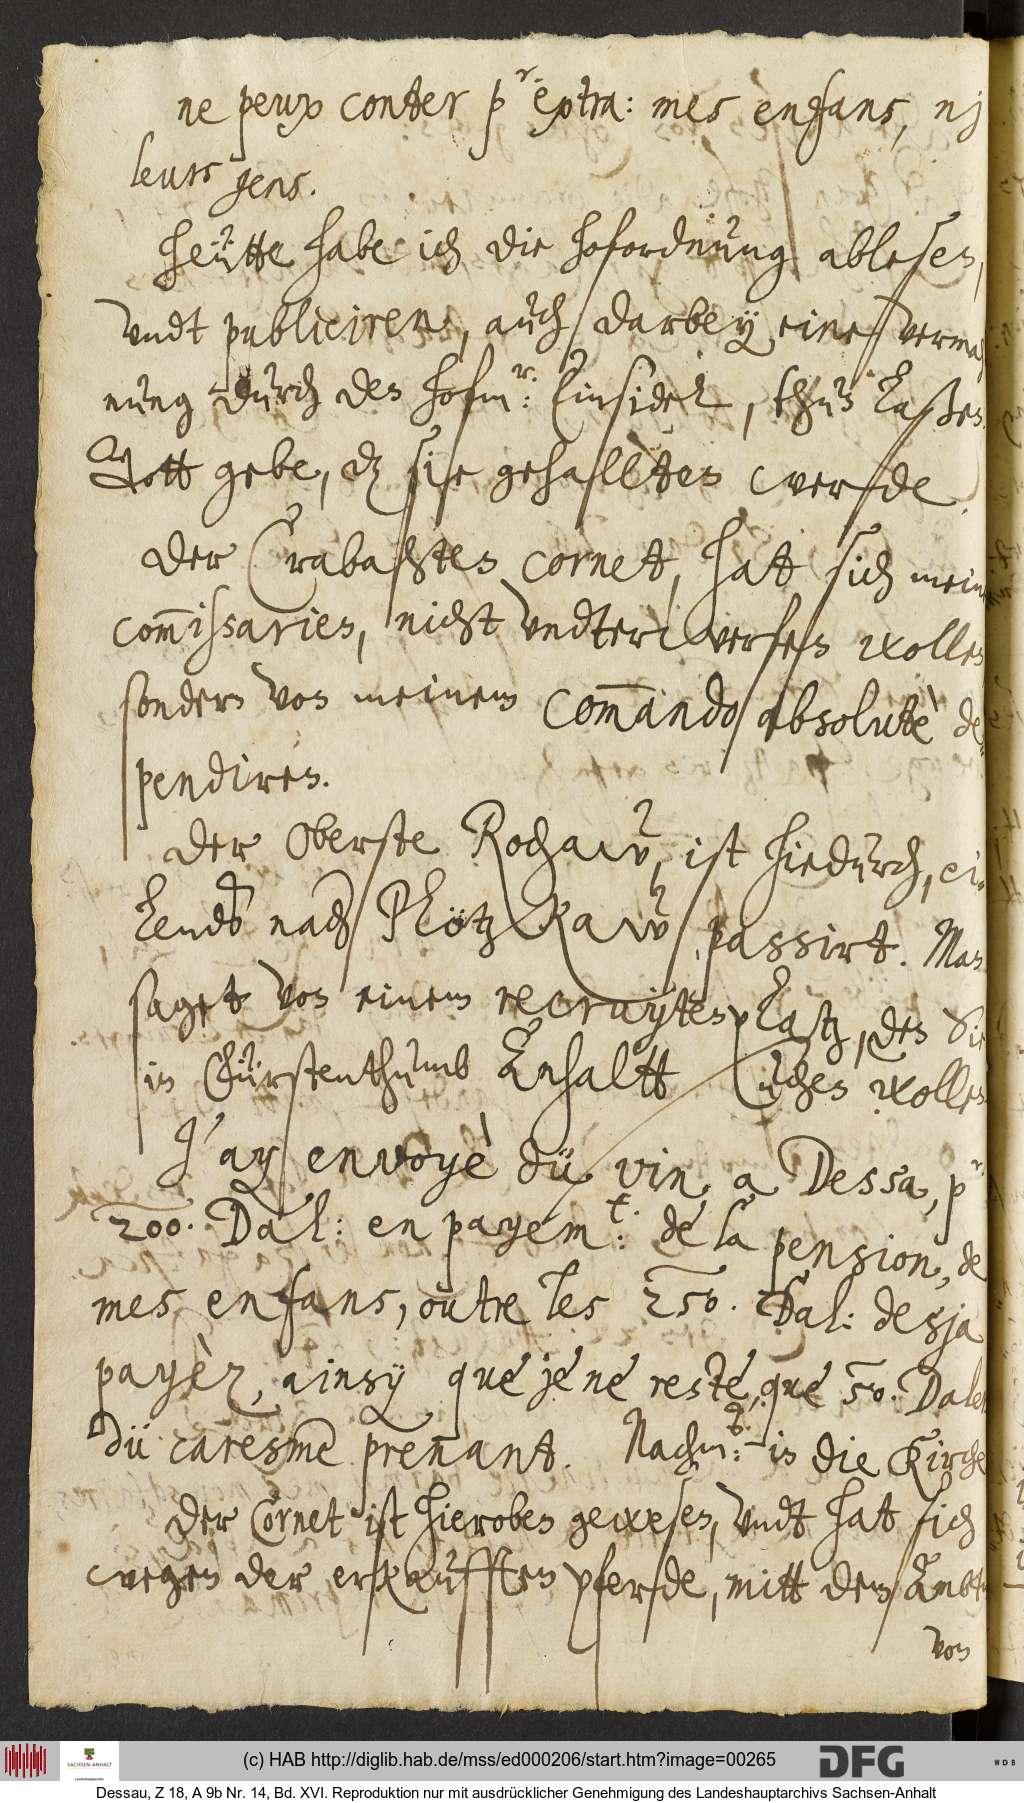 ne peux conter pr. extra: mes enfans, nj
leurs gens.
Heütte habe ich die hofordnung ablesen,
vndt publiciren, auch darbey eine verma¬
nung durch den hofmr: Einsidel, thun laßen.
Gott gebe, dz sie gehallten werde.
Der Crabahten cornet, hat sich meine
com̅issarien, nicht vndterwerfen wollen
sondern von meinem com̅ando absolutè de¬
pendiren.
Der Oberste Rochaw, ist hiedurch, ei¬
lends nach Plötzkaw passirt. Man
saget von einem recruytenplatz, den Sie
in Fürstenthumb Anhaltt suchen wollen
J'ay envoyè dü vin, a Dessa, pr.
200. Dal: en payemt.: de la pension, de
mes enfans, outre les 250. Dal: desja
payèz, ainsy que je ne reste, que 50. Daler
dü caresme prenant. Nachm: in die Kirche
Der Cornet ist hieroben gewesen, vndt hat sich
wegen der erkaufften pferde, mitt dem Ambtm
von
(c) HAB http://diglib.hab.de/mss/ed000206/start.htm?image=00265
SACHSEN-ANHALT
Landeshauptarchiv
DFG
WDB
Dessau, Z 18, A 9b Nr. 14, Bd. XVI. Reproduktion nur mit ausdrücklicher Genehmigung des Landeshauptarchivs Sachsen-Anhalt